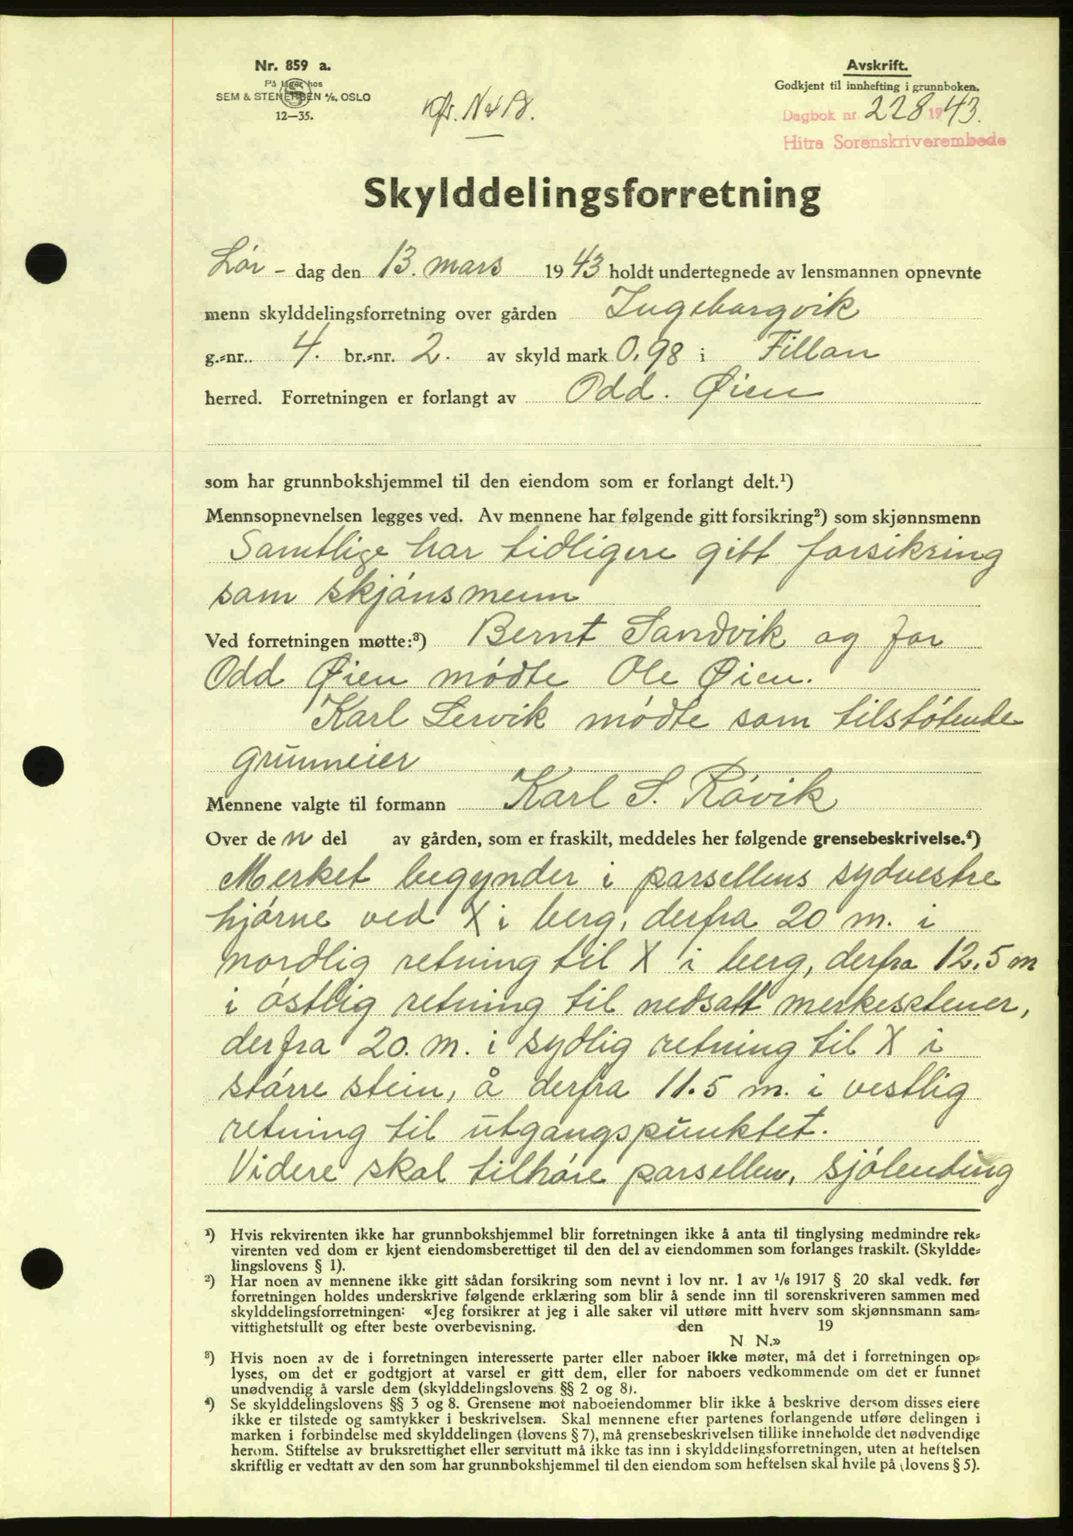 Nr. 859 a.
På lager hos
SEM & STENERSEN A/S, OSLO
12—35.
Avskrift.
Godkjent til innhefting i grunnboken.
Dagbok nr. 228 1943.
Hitra Sorenskriverembede
Skylddelingsforretning
Lør - dag den 13. mars 1943 holdt undertegnede av lensmannen opnevnte
menn skylddelingsforretning over gården Ingeborgvik
g.-nr. 4. br.-nr. 2. av skyld mark 0,98 i Fillan
herred. Forretningen er forlangt av Odd. Øien
som har grunnbokshjemmel til den eiendom som er forlangt delt.¹)
Mennsopnevnelsen legges ved. Av mennene har følgende gitt forsikring²) som skjønnsmenn
Samtlige har tidligere gitt forsikring
som skjønsmenn
Ved forretningen møtte:³) Bernt Sandvik og for
Odd Øien mødte Ole Øien.
Karl Lervik mødte som tilstøtende
grunneier
Mennene valgte til formann Karl S. Røvik
Over den del av gården, som er fraskilt, meddeles her følgende grensebeskrivelse.⁴)
Merket begynder i parsellens sydvestre
hjørne ved X i berg, derfra 20 m. i
nordlig retning til X i berg, derfra 12.5 m
i østlig retning til nedsatt merkestener,
derfra 20. m. i sydlig retning til X i
større stein, å derfra 11.5 m. i vestlig
retning til utgangspunktet.
Videre skal tilhøre parsellen, sjølending
¹) Hvis rekvirenten ikke har grunnbokshjemmel blir forretningen ikke å anta til tinglysing medmindre rek-
virenten ved dom er kjent eiendomsberettiget til den del av eiendommen som forlanges fraskilt. (Skyldde-
lingslovens § 1).
²) Har noen av mennene ikke gitt sådan forsikring som nevnt i lov nr. 1 av 1/6 1917 § 20 skal vedk. før
forretningen holdes underskrive følgende erklæring som blir å sende inn til sorenskriveren sammen med
skylddelingsforretningen: «Jeg forsikrer at jeg i alle saker vil utføre mitt hverv som skjønnsmann sam-
vittighetsfullt og efter beste overbevisning. den 19
N N.»
³) Hvis noen av de i forretningen interesserte parter eller naboer ikke møter, må det i forretningen op-
lyses, om det er godtgjort at varsel er gitt dem, eller for naboers vedkommende om det er funnet
unødvendig å varsle dem (skylddelingslovens §§ 2 og 8).
⁴) Se skylddelingslovens §§ 3 og 8. Grensene mot naboeiendommer blir ikke å beskrive dersom disses eiere
ikke er tilstede og samtykker i beskrivelsen. Skal mennene efter partenes forlangende utføre delingen i
marken i forbindelse med skylddelingen (lovens § 7), må grensebeskrivelsen tillike inneholde det nødvendige
herom. Stiftelse av bruksrettighet eller servitutt må ikke tas inn i skylddelingsforretningen, uten at heftelsen
skriftlig er vedtatt av den som har grunnbokshjemmel til den eiendom som heftelsen skal hvile på (lovens § 5).